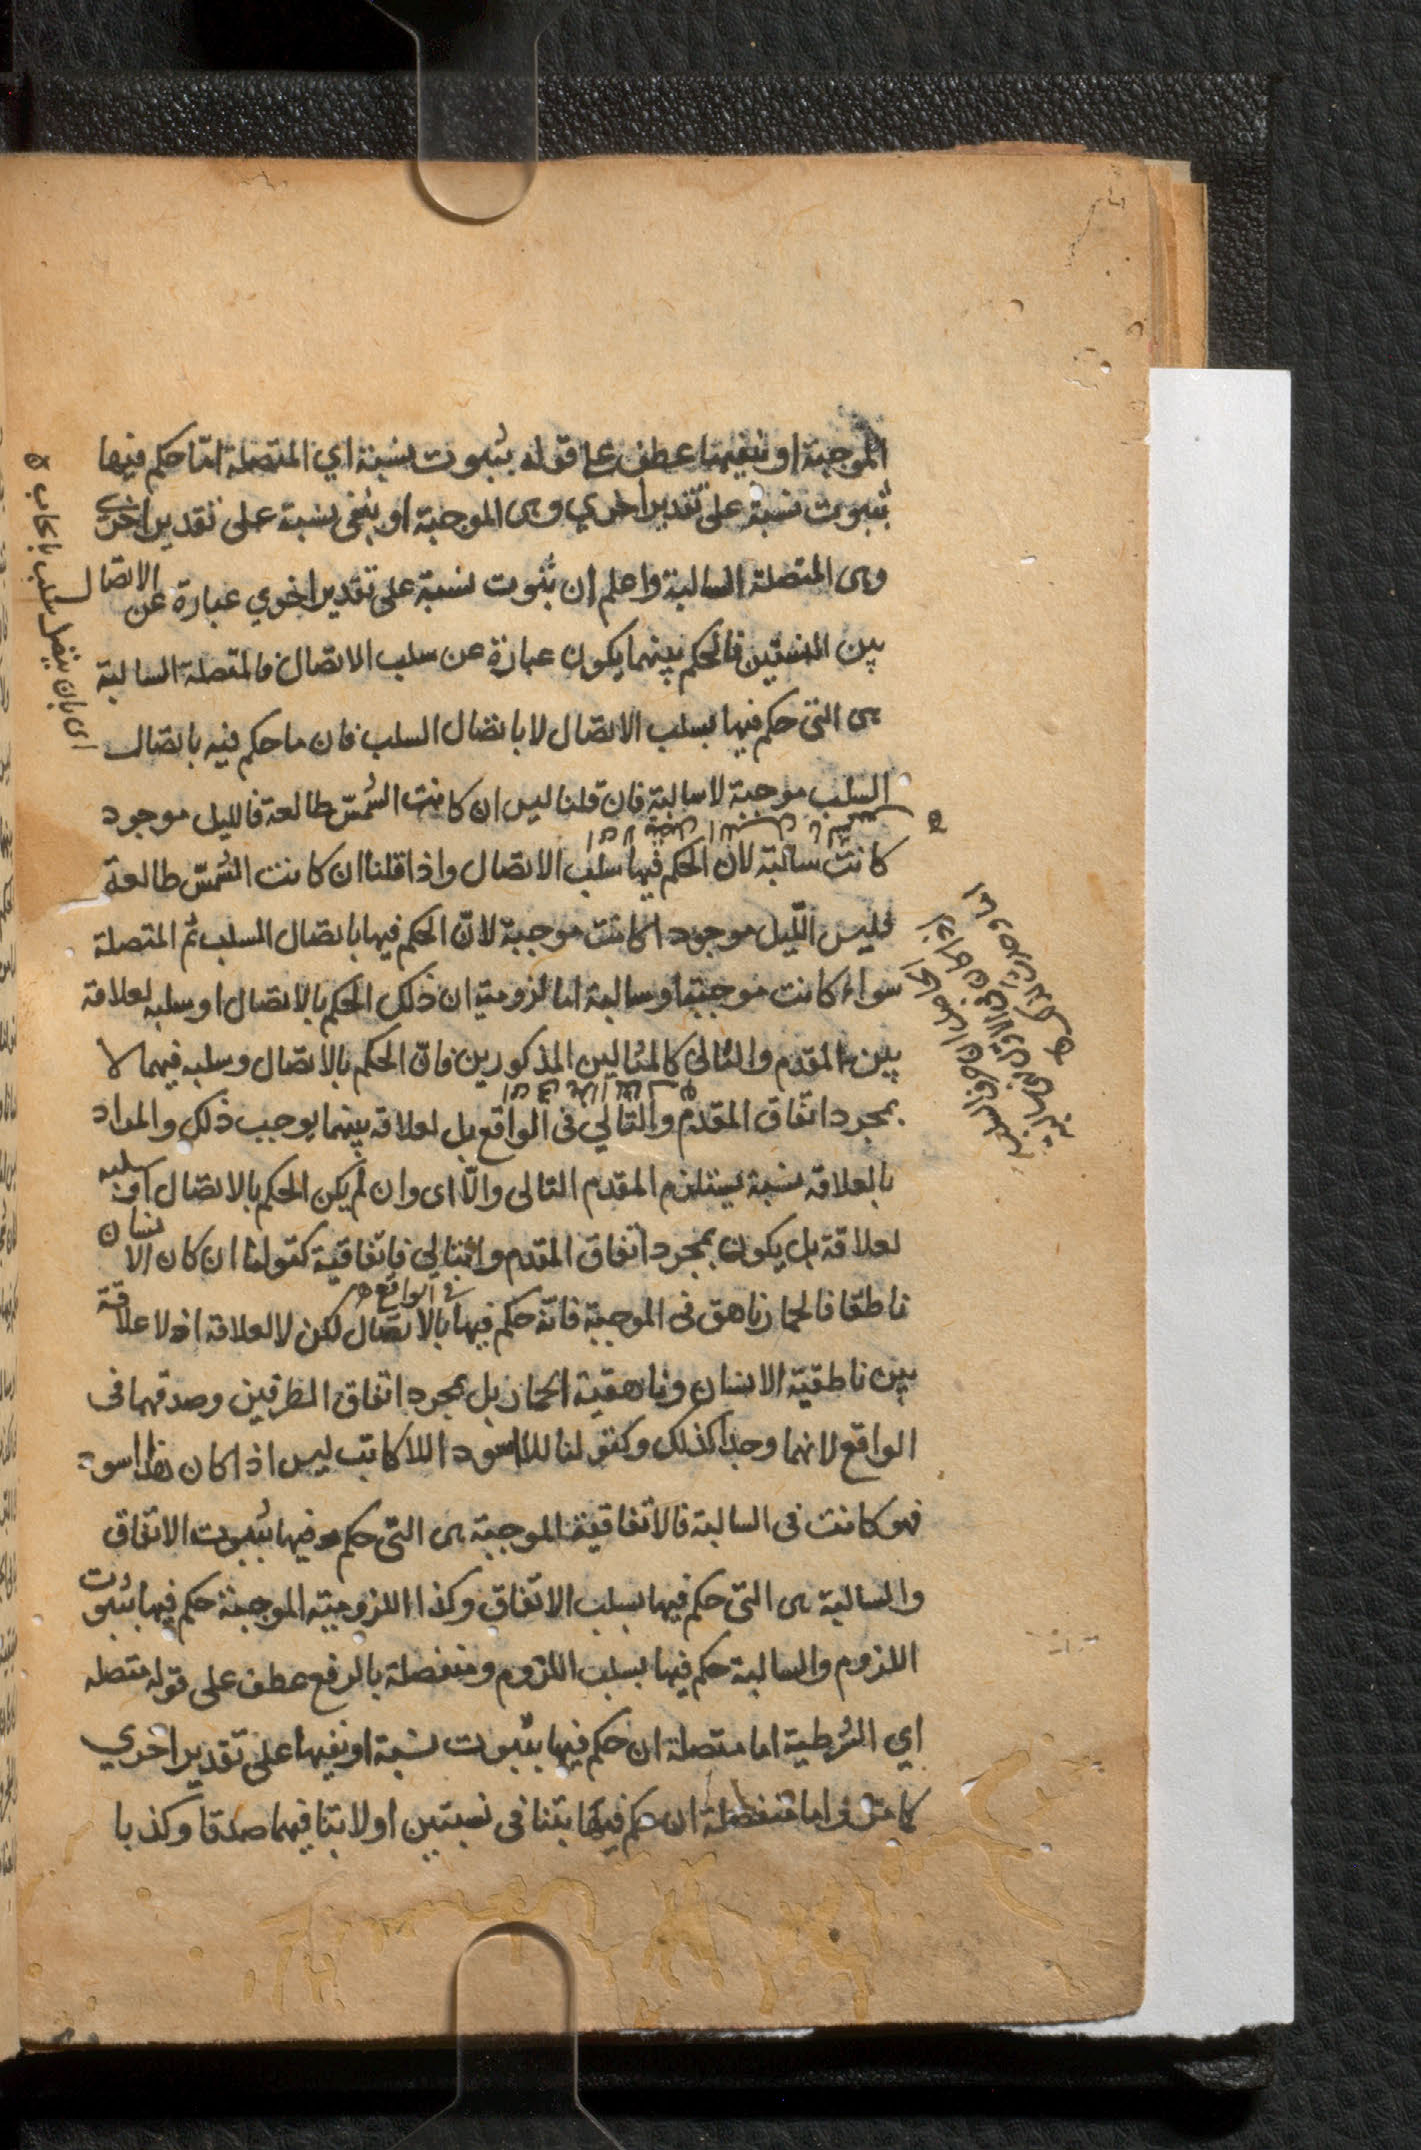 الموجبة او نفيها عطف على قوله بثبوت نسبة اي المتصلة امّا حكم فيها
بثبوت نسبة على تقدير اخري وهى الموجبة او بنفى نسبة على تقدير اخرى
وهى المتصلة السالبة واعلم ان ثبوت نسبة على تقدير اخري عبارة عن الاتصال
بين النسبتين فالحكم بينهما يكون عبارة عن سلب الاتصال فالمتصلة السالبة
هى التى حكم فيها بسلب الاتصال لا باتصال السلب فان ما حكم فيه باتصال
السلب موجبة لا سالبة فان قلنا ليس ان كانت الشمس طالعة فالليل موجود
كانت سالبة لان الحكم فيها سلب الاتصال واذا قلنا ان كانت الشمس طالعة
فليس اللّيل موجودا كانت موجبة لانّ الحكم فيها باتصال السلب ثم المتصلة
سواء كانت موجبة او سالبة اما لزومية ان ذلك الحكم بالاتصال او سلبه لعلاقة
بين المقدم والتالى كالمثالين المذكورين فانّ الحكم بالاتصال وسلبه فيهما لا
بمجرد اتّفاق المقدّم والتالي فى الواقع بل لعلاقة بينهما يوجب ذلك والمراد
بالعلاقة نسبة يستلزم المقدم التالى والّا اى وان لم يكن الحكم بالاتصال او سلبه
لعلاقة بل يكون بمجرد اتفاق المقدم والتالي فاتّفاقية كقولنا ان كان الانسان
ناطقا فالحمار ناهق فى الموجبة فانّه حكم فيها بالاتّصال لكن لا لعلاقة اذ لا علاقة
فى الواقع
بين ناطقيّة الانسان وناهقية الحمار بل بمجرد اتفاق الطرفين وصدقهما فى
الواقع لانهما وجدا كذلك وكقولنا للاسود اللاكاتب ليس اذا كان هذا اسود
فهو كانت فى السالبة فالاتّفاقية الموجبة هى التى حكم فيها بثبوت الاتفاق
والسالبة هى التى حكم فيها بسلب الاتّفاق وكذا اللزوميّة الموجبة حكم فيها بثبوت
اللزوم والسالبة حكم فيها بسلب اللزوم ومنفصلة بالرفع عطف على قوله متصله
اي الشرطية اما متصلة ان حكم فيها بثبوت نسبة او نفيها على تقدير اخري
كما مرّ واما منفصلة ان حكم فيها بتنا فى نسبتين او لا بتنا فيهما صدقا وكذبا
اى بان يتصل سلب بايجاب